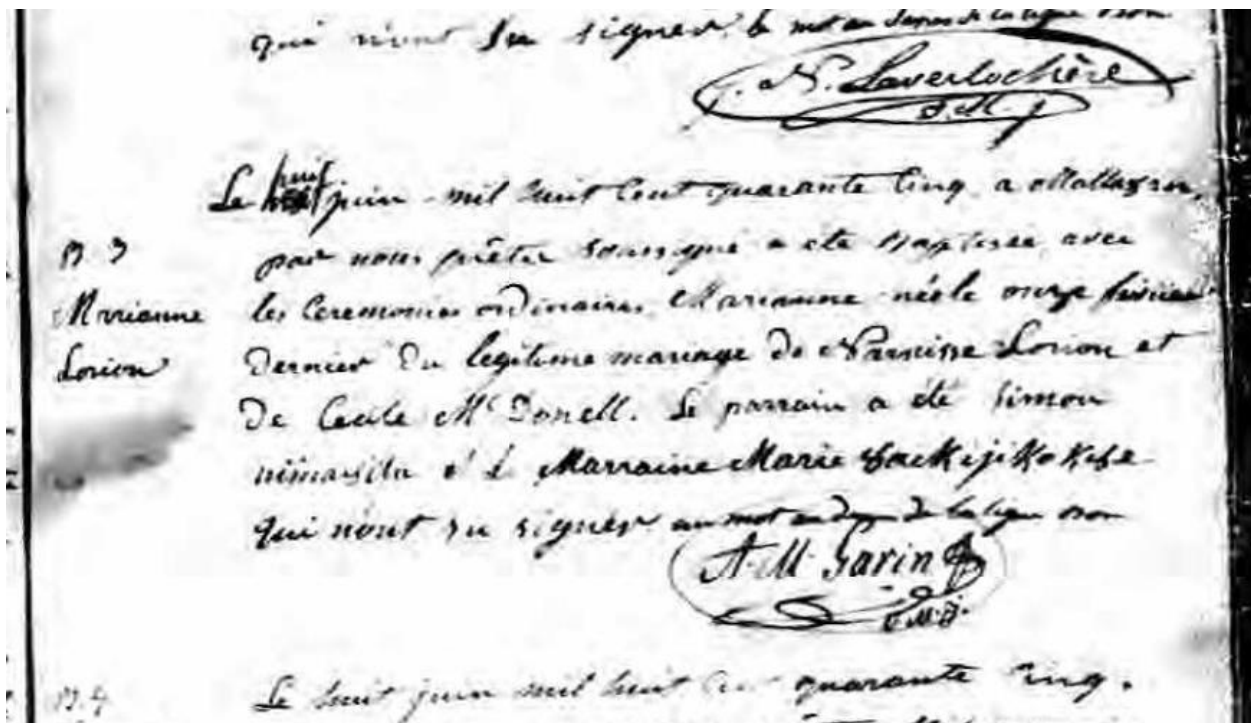 qui n'ont su signer, le mot au dessus de la ligne bon
J. N. Laverlochère
O.M.J
Le huit juin mil huit cent quarante cinq a Mattawan,
B. 3
par nous prêtre soussigné a été baptisée avec
Marianne
Lorion
les Ceremonies ordinaires, Marianne née le onze fevrier
dernier du legitime mariage de Narcisse Lorion et
de Cecile McDonell. Le parrain a été Simon
et la Marraine Marie
qui n'ont su signer un mot au dessus de la ligne bon
A. M. Garin
O.M.J.
B. 4
Le huit juin mil huit cent quarante cinq.